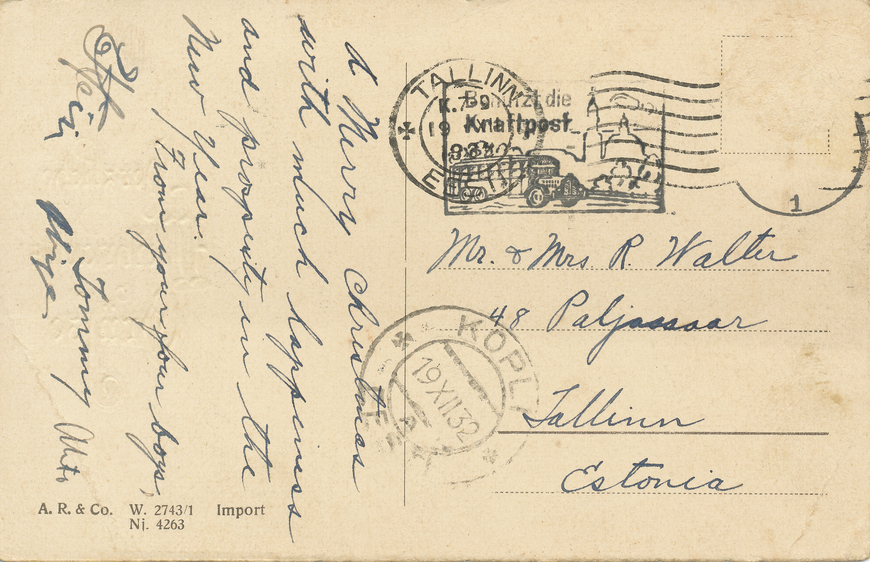 A Merry Christmas
with much happiness
and prosperity in the
New Year.
From your four boys,
Tommy
TALLINN
19 XII
EESTI
Benutzt die
Kraftpost
1
Mr. & Mrs R Walter
48 Paljassaar
Tallinn
Estonia
KOPLI
19 XII 32
EESTI
A. R. & Co. W. 2743/1 Import
Nj. 4263